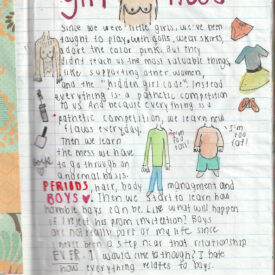 girl hood
Since we were little girls, we've been
taught to play with dolls, wear skirts,
adore the color pink. But they
didn't teach us the most valuable things,
like supporting other women,
and the "hidden girl code". Instead
everything is a pathetic competition
to us. And because everything is a
pathetic competition, we learn new
flaws everyday.
Then we learn
the mess we have
to go through on
a normal basis.
I'm too fat!
PERIODS, hair, body management and
BOYS. Then we start to learn how
horrible boys can be. Like what will happen
if I reject his prom invitation? Boys
are not really part of my life since
never been a step near that relationship
EVER. I would like to though? I hate
how everything relates to boys.